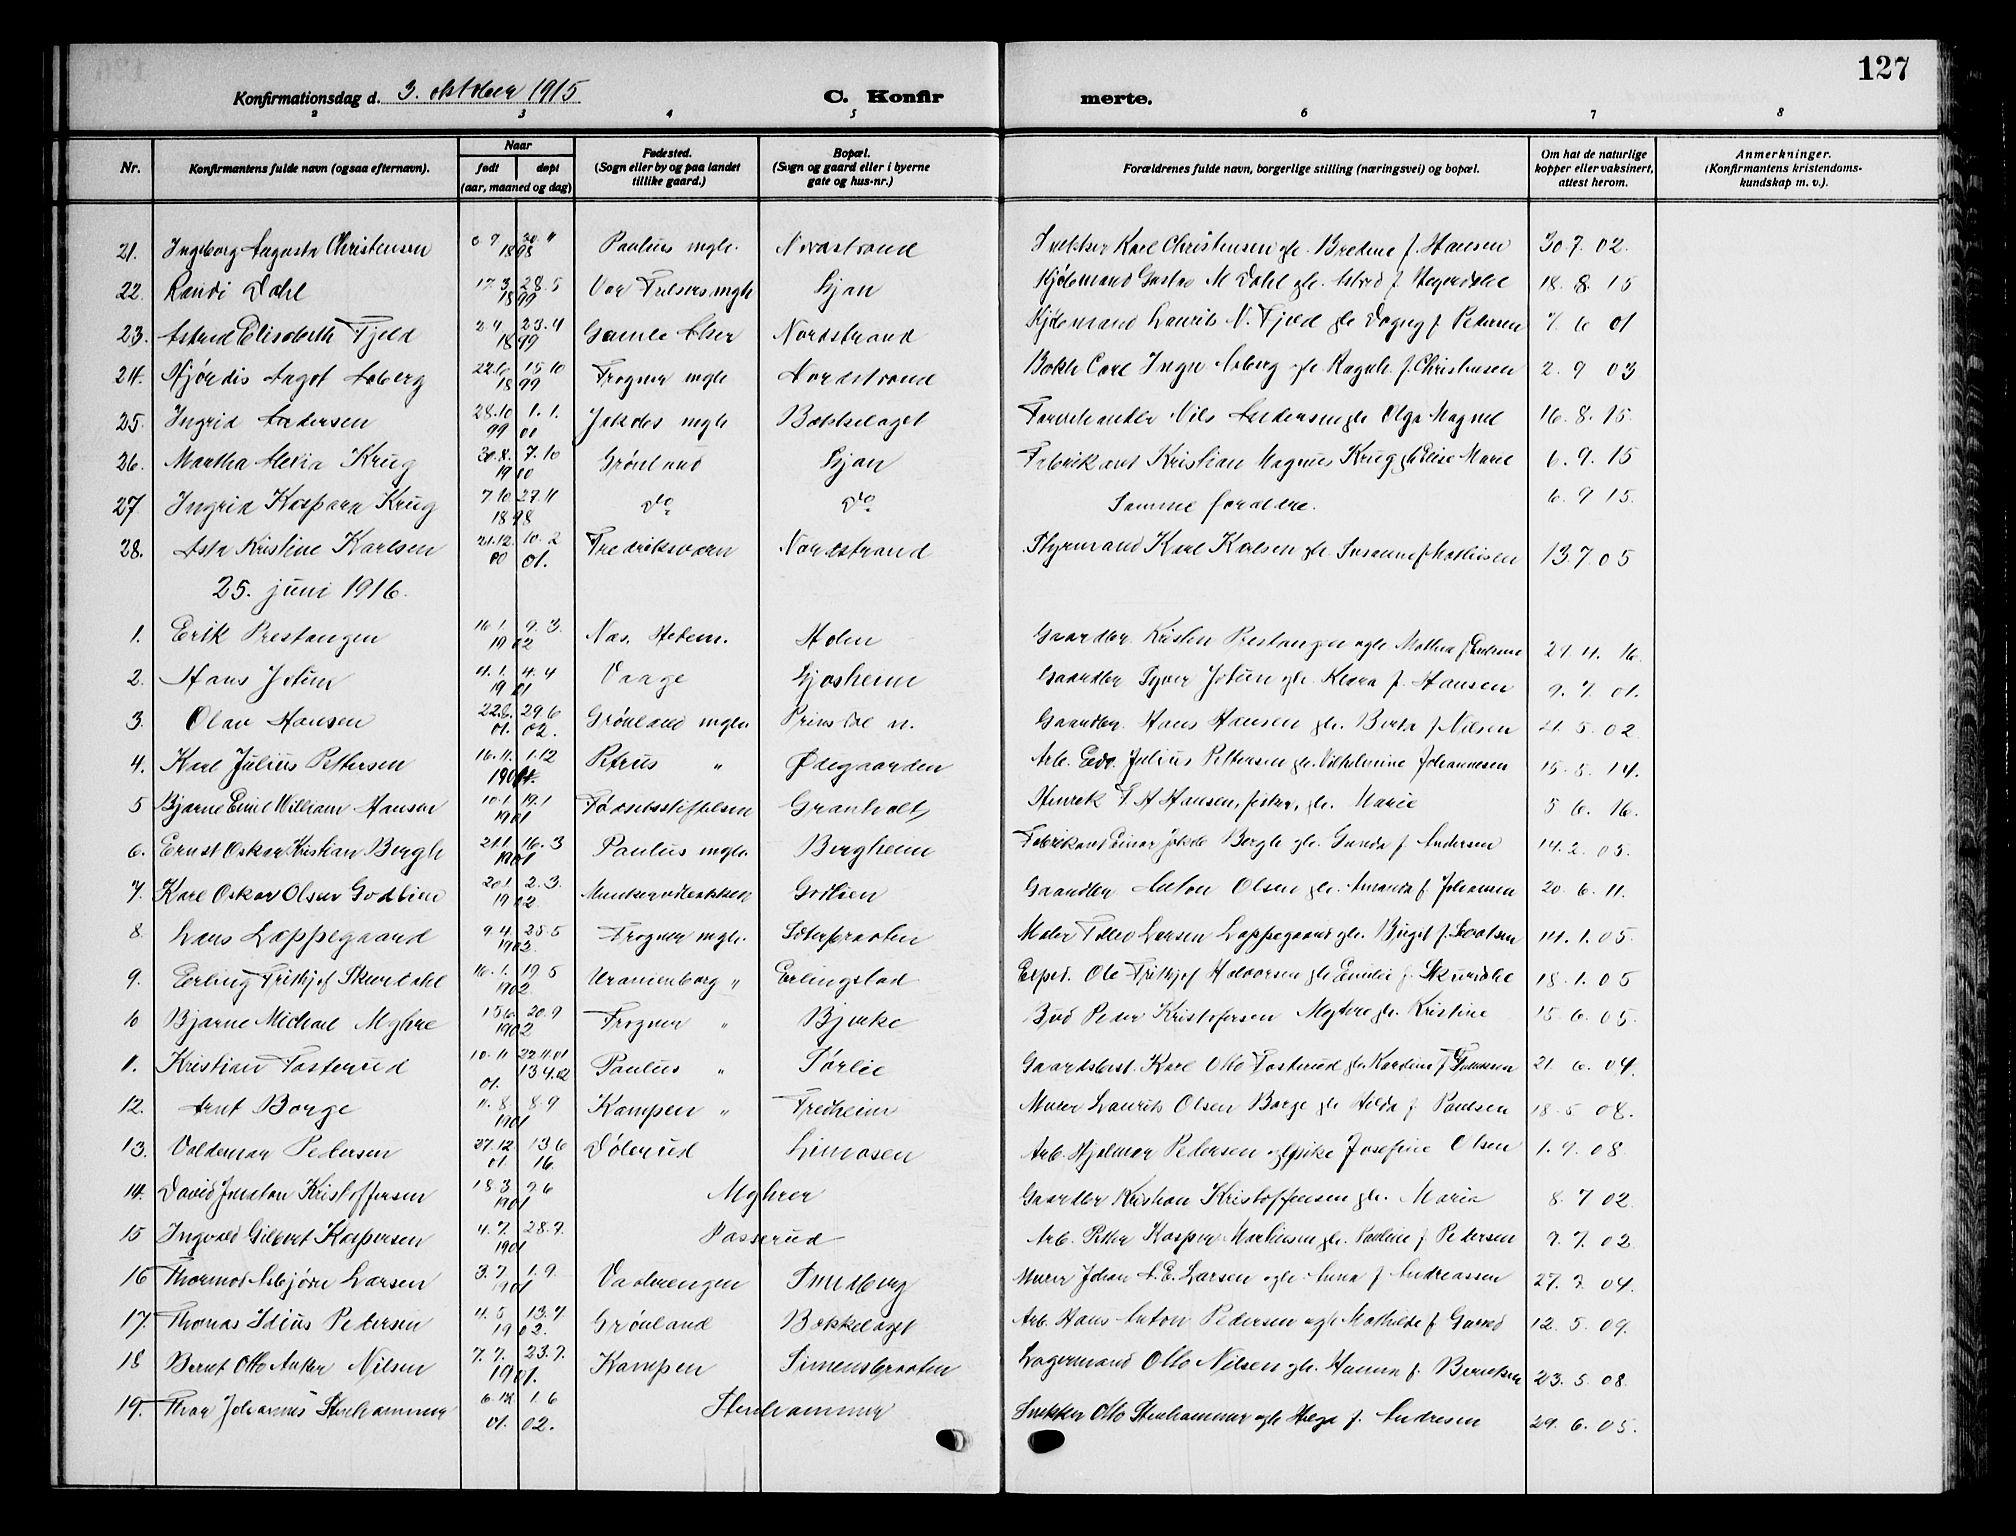 127
Konfirmationsdag d. 3. oktober 1915 C. Konfirmerte.
2 3 4 5 6 7 8
Nr. Konfirmantens fulde navn (ogsaa efternavn). Naar født døpt (aar, maaned og dag) Fødested. (Sogn eller by og paa landet tillike gaard.) Bopæl. (Sogn og gaard eller i byerne gate og hus-nr.) Forældrenes fulde navn, borgerlige stilling (næringsvei) og bopæl. Om hat de naturlige kopper eller vaksinert, attest herom. Anmerkninger. (Konfirmantens kristendomskundskap m. v.).
21. Ingeborg Augusta Christensen 1898 Paulus mgh. Nordstrand Karl Christensen gh. f. Hansen 30.7.02.
22. Randi Dahl 17.3 28.5 1899 Vor Frelsers mgh Ljan Kjøbmand Gustav M Dahl gh. 18.8.15
23. Astrid Elisabeth Fjeld 2.4 23.4 1899 Gamle Aker Nordstrand Kjøbmand Laurits N. Fjeld gh Dagny f Pedersen 7.6 01
24. Hjørdis Aagot Aaberg 22.6 15.10 1899 Frogner mgh Nordstrand Bokh Carl Aaberg gh Ragnh. f. Christensen 2.9 03
25. Ingrid Andersen 28.10 99 1.1. 01 Jakobs mgh Bækkelaget Nils Andersen gh Olga Magnel 16.8.15.
26. Martha Krug 30.8. 7.10 1900 Grønland Ljan Fabrikant Kristian Magnus Krug gh Elise Marie 6.9.15
27 Ingrid Kaspara Krug 7.10 27.11 1898 do do Samme forældre. 6.9 15.
28. Asta Kristine Karlsen 21.12. 00 10.2 01. Fredriksværn Nordstrand Styrmand Karl Karlsen gh Susanne f Mathisen 13.7.05
25. juni 1916.
1. Erik Prestangen 16.1. 9.3. 1902 Nas. Hedem. Holm Gaardbr. Kristen Prestangen ogh 29.11.16.
2. Hans Jotun 4.4 1901 Vaage Ljosheim Gaardbr Jotun gh. Klara f. Hansen 9.7.01.
3. Olav Hansen 22.6. 01. 29.6 02. Grønland mgh. Prinsdal n. Gaardbr. Hans Hansen gh. Berta f Nilsen 21.5.02
4. Karl Julius Pettersen 16.11. 1.12 1901. Petrus " Ødegaarden Arb. Edv. Julius Pettersen gh. Vilhelmine Johannesen 15.5.14.
5 Bjarne Emil William Hansen 10.1 19.1 1901 Fødselsstiftelsen Granholt Henrik F H Hansen, gh. Marie 5 6. 16.
6. Ernst Oskar Kristian Bergh 21.1 16.3 1901 Paulus mgh. Bergheim Fabrikand Einar Jakob Bergh gh. Gunda f Andersen 14.2.05.
7. Karl Oskar Olsen Godlien 20.1 2.3. 1902 Godlien Gaardbr Anton Olsen gh. Amanda f Johansen 20.6.11.
8. Lars Loppegaard 9.4 25.5 1902. Frogner mgh. Maler Larsen Loppegaard gh. Birgit f. 14.1.05.
9. Erling Frithjof Skurdahl 16.1. 19.5 1902 Uranienborg " Erlingstad Exped. Ole Frithjof Halvorsen gh Emilie f. Skurdahl 18.1.05
10 Bjarne Michael Myhre 15.6. 20.9 1902 Frogner " Bjerke Bud Peder Kristofersen Myhre gh. Kristine 15.6.05.
11. Kristian Fosterud 10.11 01. 22.11.01 13.4.02 Paulus " Sørlie Gaardsbest. Karl Otto Fosterud gh. Karoline f 21.6.04.
12. Arnt Borge 11.8 8.9 1901 Kampen " Fredheim Murer Laurits Olsen Borge gh Hilda f Paulsen 18.5 08.
13. Valdemar Pedersen 27.12 01. 13.6 16. Dølerud Limosen Arb. Hjalmar Pedersen og pike Josefine Olsen 1.9.08
14. David Kristoffersen 18.3 9.6 1901 Myhrer Gaardbr Kristian Kristoffersen gh. Maria 8.7 02
15 Ingvald Gilbert Kaspersen 4.7. 28.9. 1901 Passerud Arb. Petter Kasper Martinsen gh. Pauline f Pedersen 9.7.02
16 Thormod Asbjørn Larsen 3.7. 1.9. 1901 Vaalerengen Sundberg Murer Johan A. E. Larsen ogh. Anna f Andreassen 27.7.04.
17. Thomas Idius Pedersen 4.5 13.7 1902. Grønland Bækkelaget Arb. Hans Anton Pedersen ogh Mathilde f 12.5.09.
18 Bernt Otto Anker Nilsen 7.7. 23.9. 1901. Kampen Simensbraaten Lagermand Otto Nilsen gh. Hanna f. Berntsen 23.5.08
19. Thor Johannes Stenhammer 6.12 01. 1.6 02. Stenhammer Snekker Otto Stenhammer ogh Helga f. Andresen 29.6.05.